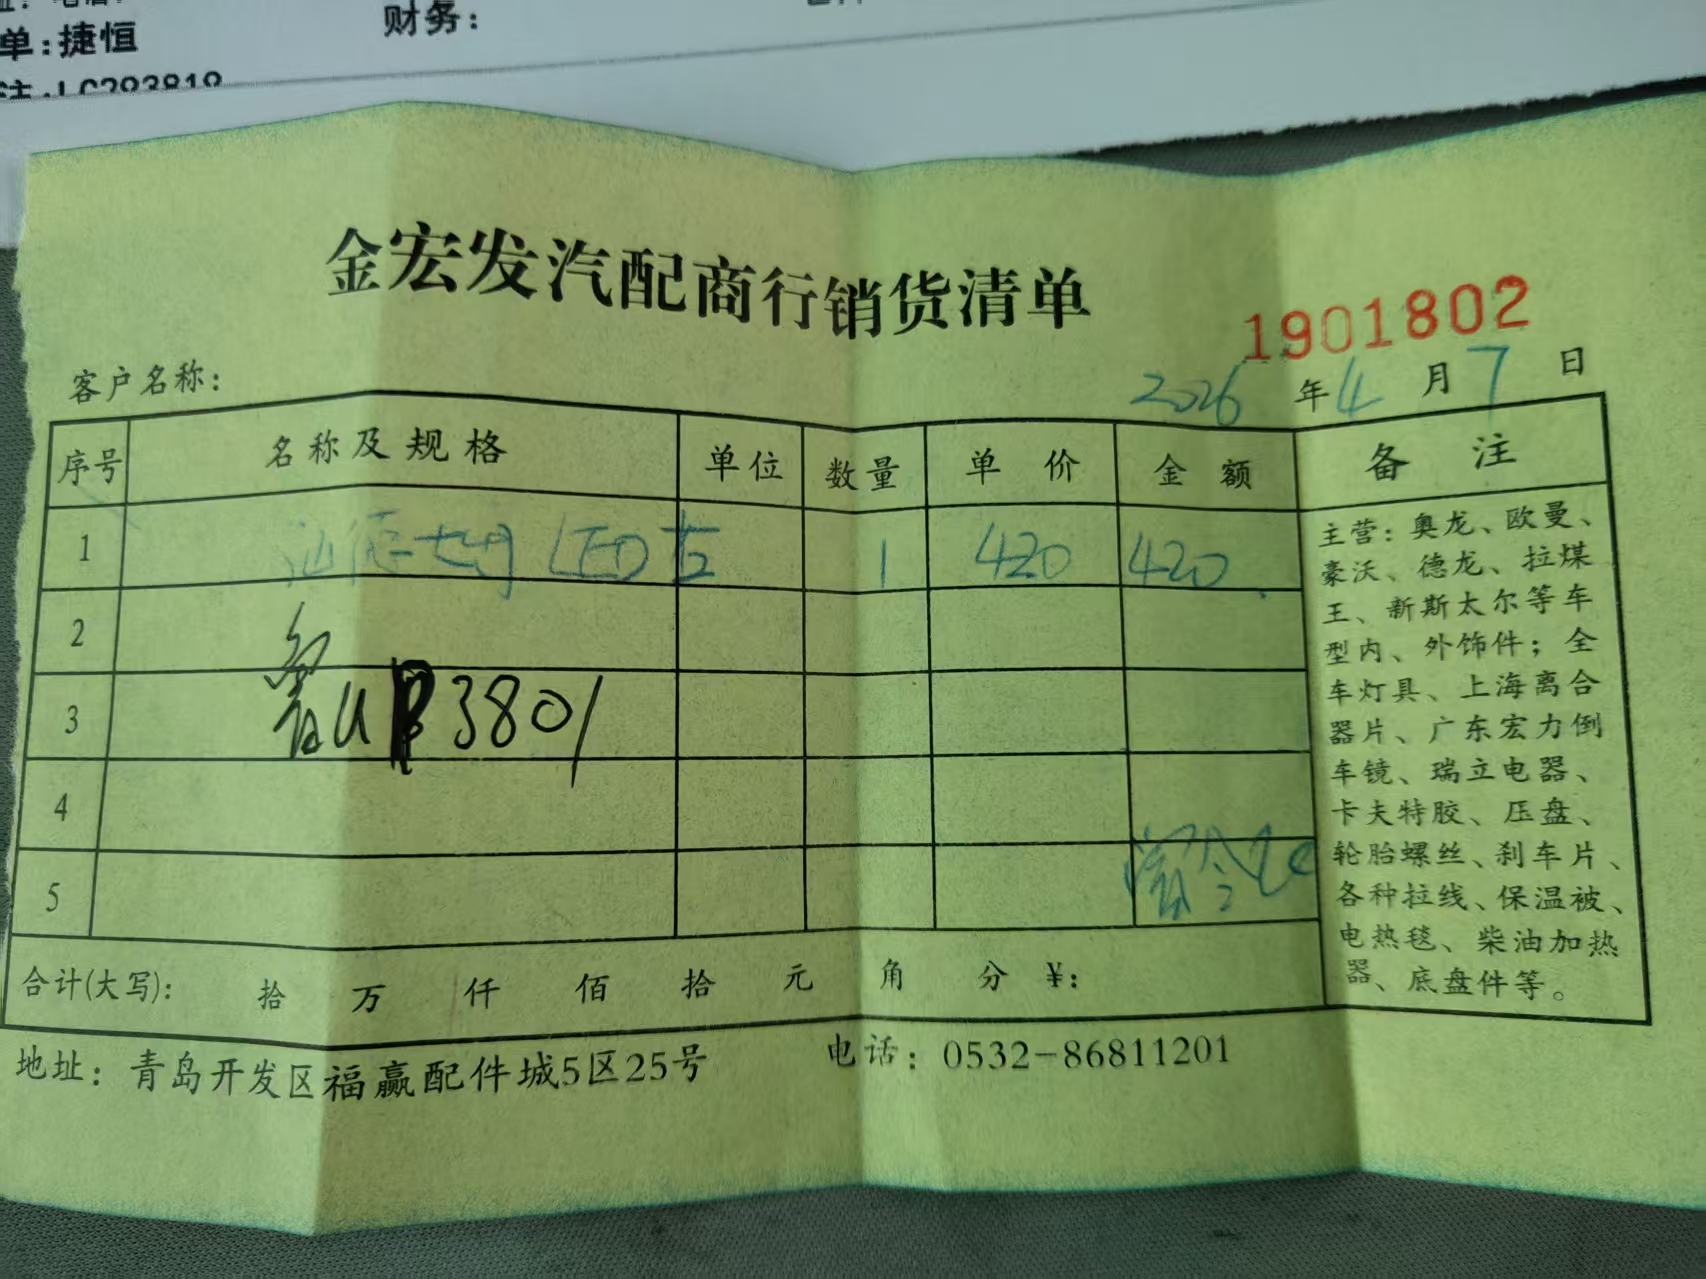 单:捷恒
财务:
注:LC293819
金宏发汽配商行销货清单
1901802
客户名称:
2026年4月7日
序号 名称及规格 单位 数量 单价 金额 备注
1 汕德 LED 右 1 420 420
2
3 鲁U 3801
4
5
主营:奥龙、欧曼、
豪沃、德龙、拉煤
王、新斯太尔等车
型内、外饰件;全
车灯具、上海离合
器片、广东宏力倒
车镜、瑞立电器、
卡夫特胶、压盘、
轮胎螺丝、刹车片、
各种拉线、保温被、
电热毯、柴油加热
器、底盘件等。
合计(大写): 拾 万 仟 佰 拾 元 角 分 ¥:
地址:青岛开发区福赢配件城5区25号 电话:0532-86811201